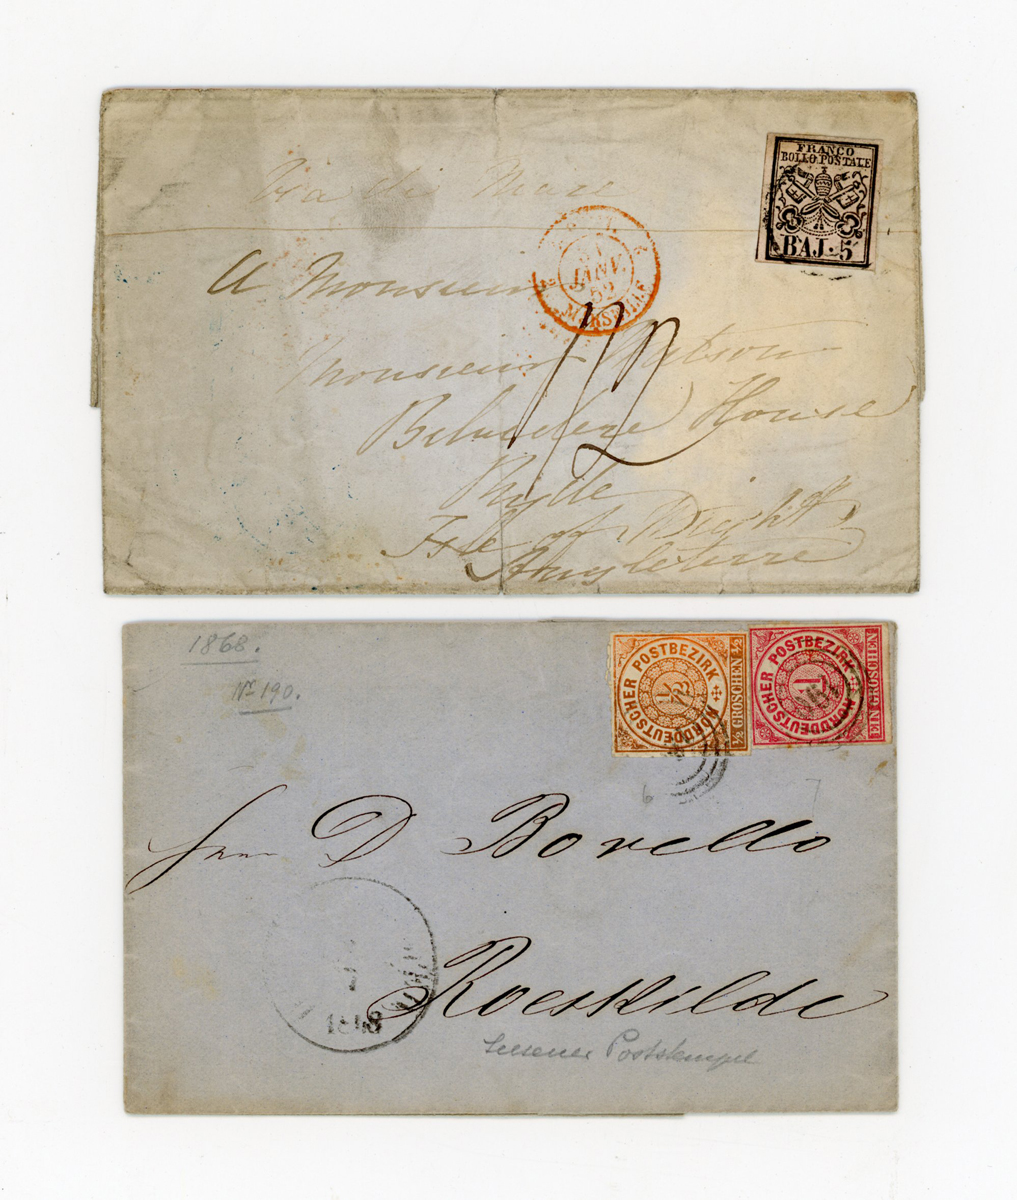 FRANCO
BOLLO POSTALE
BAJ: 5
Via di Mare
JANV.
52
MARSEILLE
A Monsieur
Monsieur Watson
Belvedere House
Ryde
Isle of Wight
Angleterre
1868.
No 190.
NORDDEUTSCHER POSTBEZIRK
1/2
1/2 GROSCHEN 1/2
NORDDEUTSCHER POSTBEZIRK
1
EIN GROSCHEN
6
7
D Borello
Roeskilde
1868
Poststempel